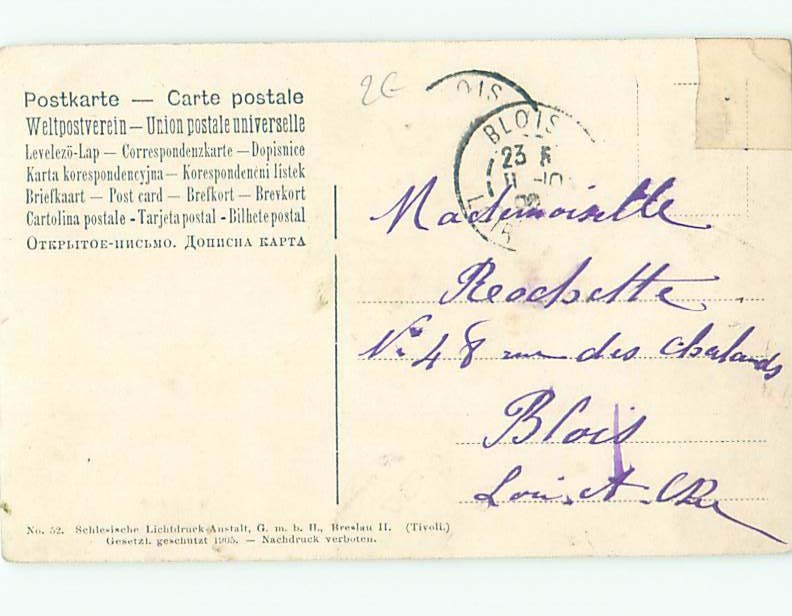 Postkarte — Carte postale
Weltpostverein — Union postale universelle
Levelezö-Lap — Correspondenzkarte — Dopisnice
Karta korespondencyjna — Korespondenčni listek
Briefkaart — Post card — Brefkort — Brevkort
Cartolina postale - Tarjeta postal - Bilhete postal
Открытое-письмо. Дописна карта
2€
OIS
BLOIS
23
11 -10
Mademoiselle
Reochette
No 48 rue des chalands
Blois
Loir-et-Cher
No. 52. Schlesische Lichtdruck-Anstalt, G. m. b. H., Breslau II. (Tivoli.)
Gesetzl. geschützt 1905. — Nachdruck verboten.